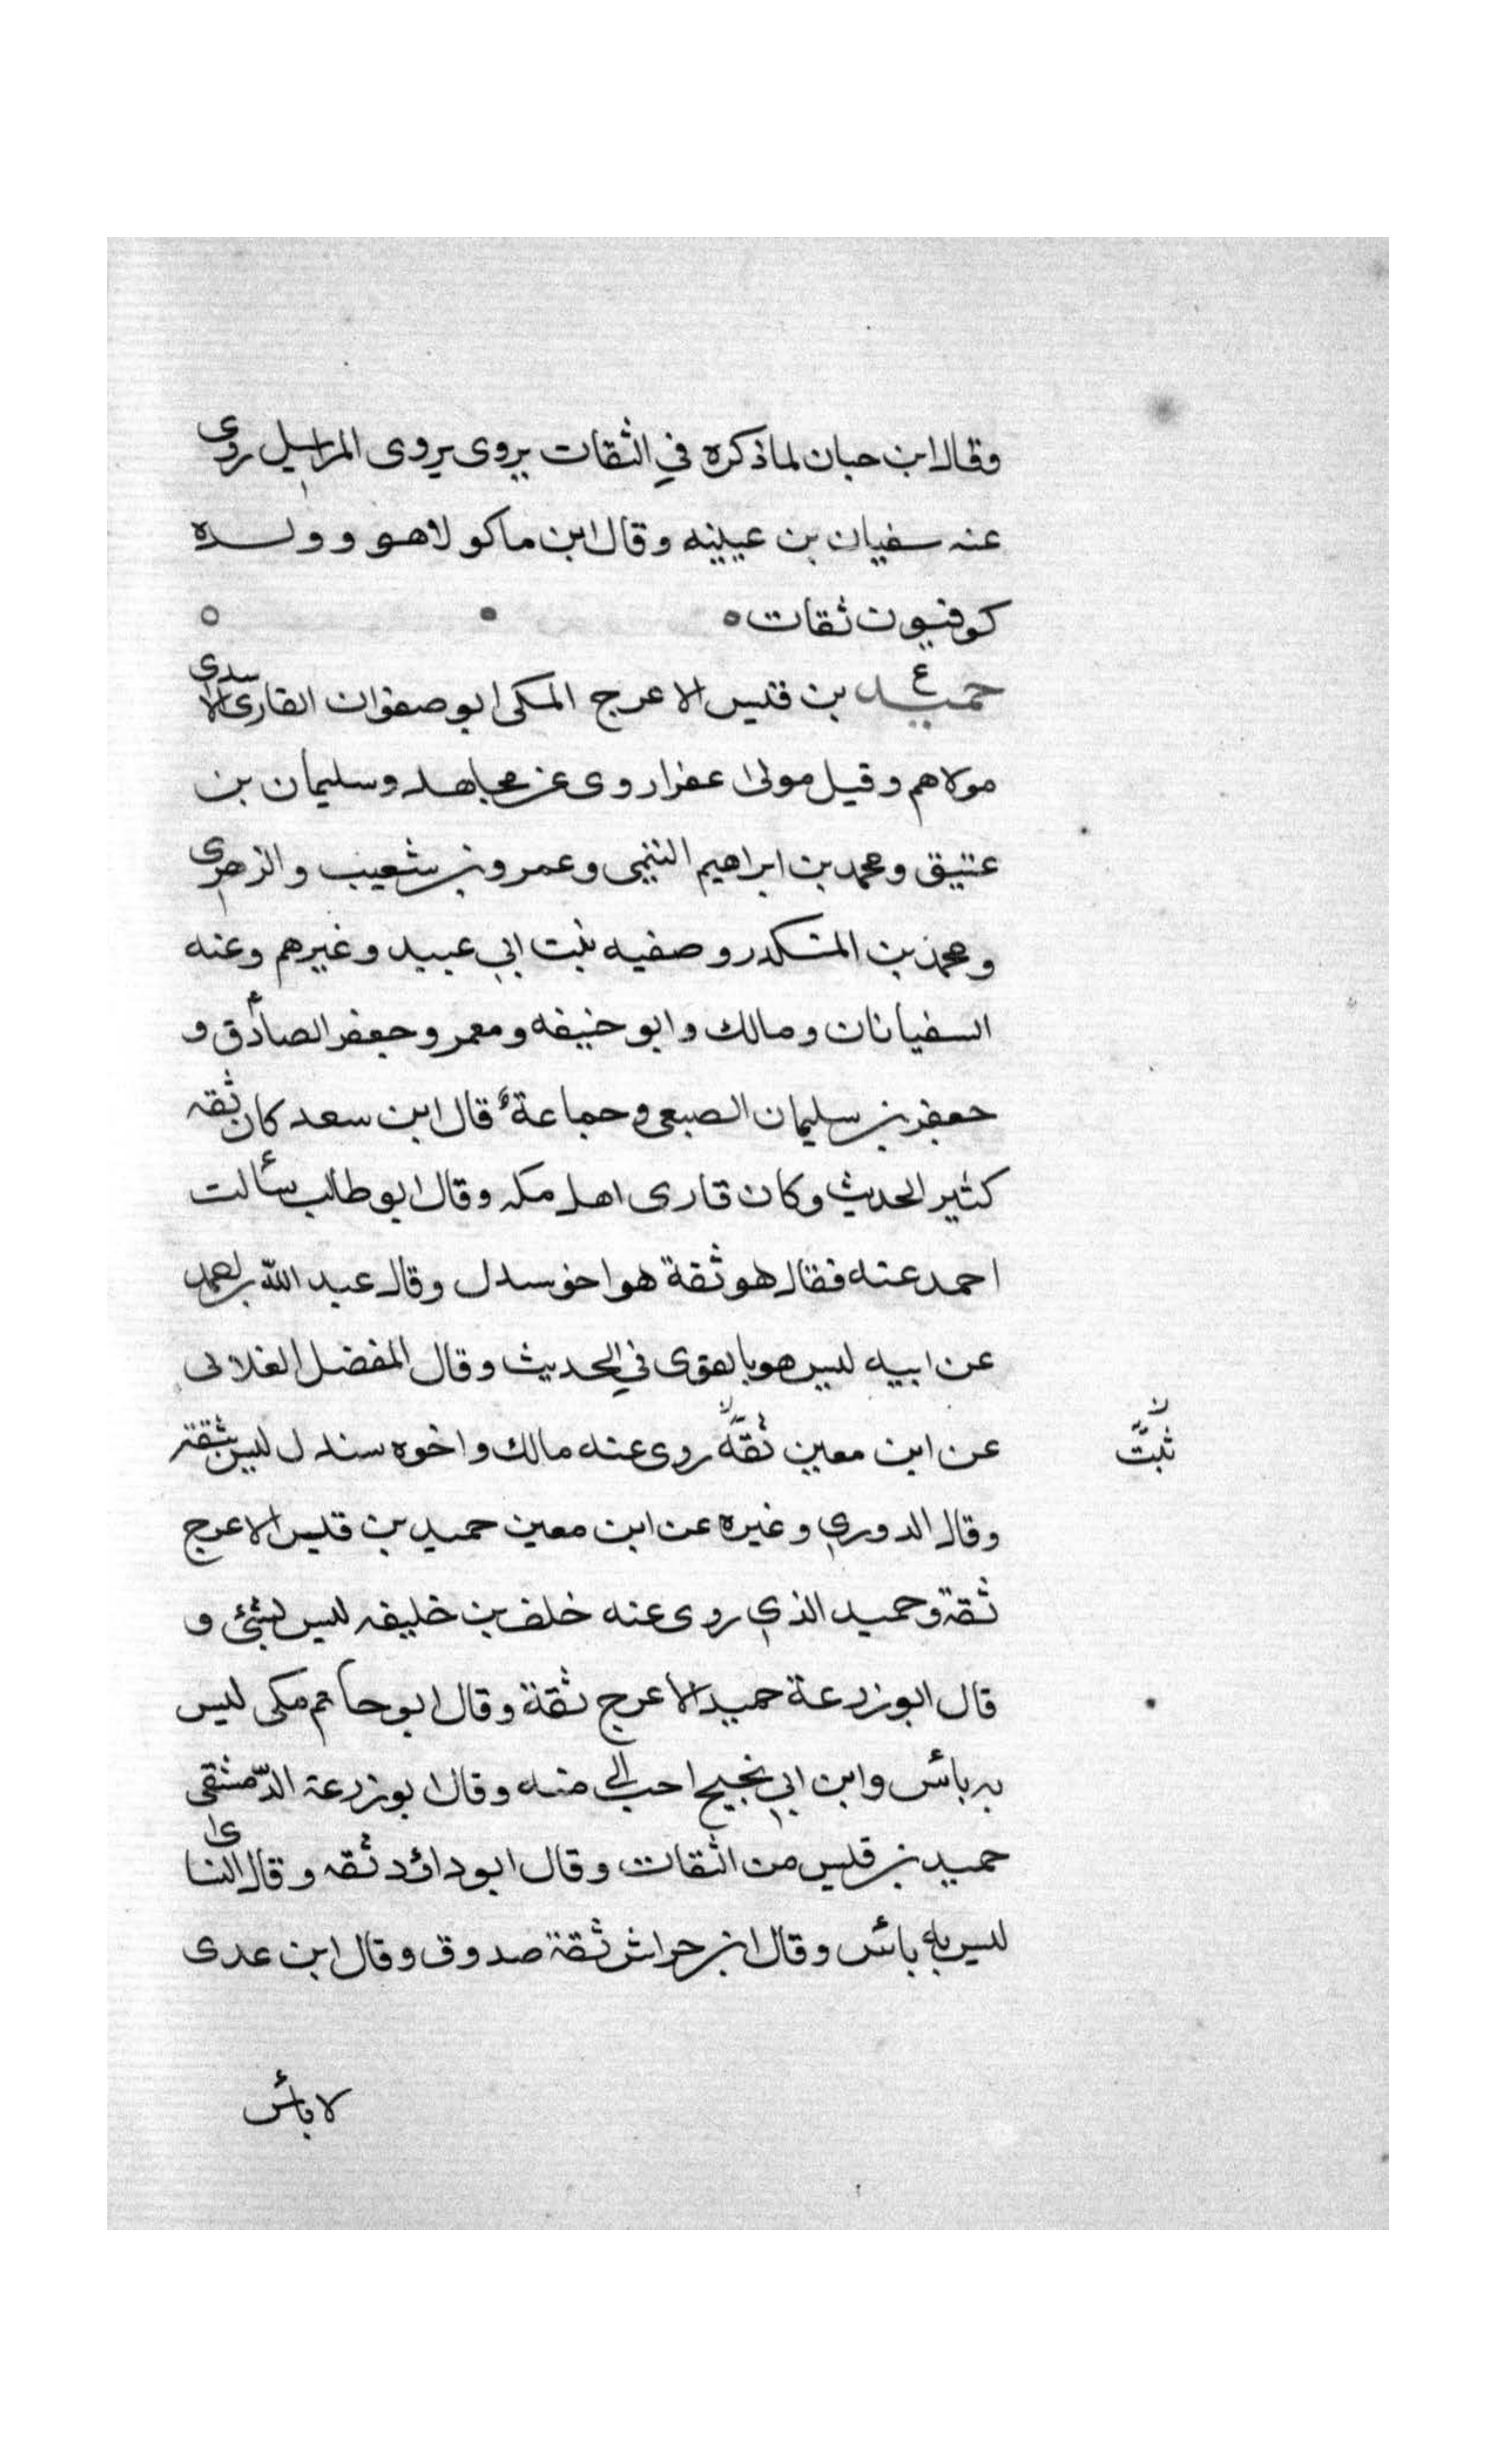 وقال ابن حبان لما ذكره في الثقات يروى يروى المراسيل روى
عنه سفيان بن عيينه وقال ابن ماكولا هو وولده
كوفيون ثقات
ع
حميد بن قيس الاعرج المكى ابو صفوان القارى الاسدى
مولاهم وقيل مولى عفرا روى عن مجاهد وسليمان بن
عتيق ومحمد بن ابراهيم التيمى وعمرو بن شعيب والزهرى
ومحمد بن المنكدر وصفيه بنت ابي عبيد وغيرهم وعنه
السفيانان ومالك وابو حنيفه ومعمر وجعفر الصادق و
جعفر بن سليمان الصبعى وجماعة قال ابن سعد كان ثقه
كثير الحديث وكان قارى اهل مكه وقال ابو طالب سألت
احمد عنه فقال هو ثقة هو اخو سندل وقال عبد الله بن احمد
عن ابيه ليس هو بالقوى في الحديث وقال المفضل الغلابى
عن ابن معين ثقة روى عنه مالك واخوه سندل ليس بثقة
ثبت
وقال الدوري وغيره عن ابن معين حميد بن قيس الاعرج
ثقة وحميد الذي روى عنه خلف بن خليفه ليس بشئ و
قال ابو زرعة حميد الاعرج ثقة وقال ابو حاتم مكى ليس
به بأس وابن ابي نجيح احب الي منه وقال ابو زرعة الدمشقى
حميد بن قيس من الثقات وقال ابو داؤد ثقه وقال النساى
ليس به بأس وقال ابن حراش ثقة صدوق وقال ابن عدى
لا بأس